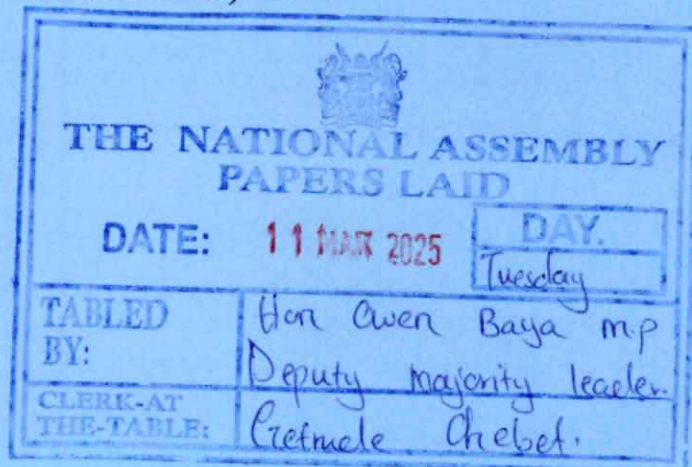 THE NATIONAL ASSEMBLY
PAPERS LAID
DATE: 11 MAR 2025
DAY.
Tuesday
TABLED BY: Hon Owen Baya m.p
Deputy majority leader.
CLERK-AT THE-TABLE: Chebet.